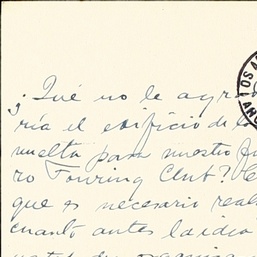 ¿Qué no le agra
ría el edificio de la
vuelta para nuestro fu
ro Touring Club? C
que es necesario real
cuanto antes la idea
LOS A